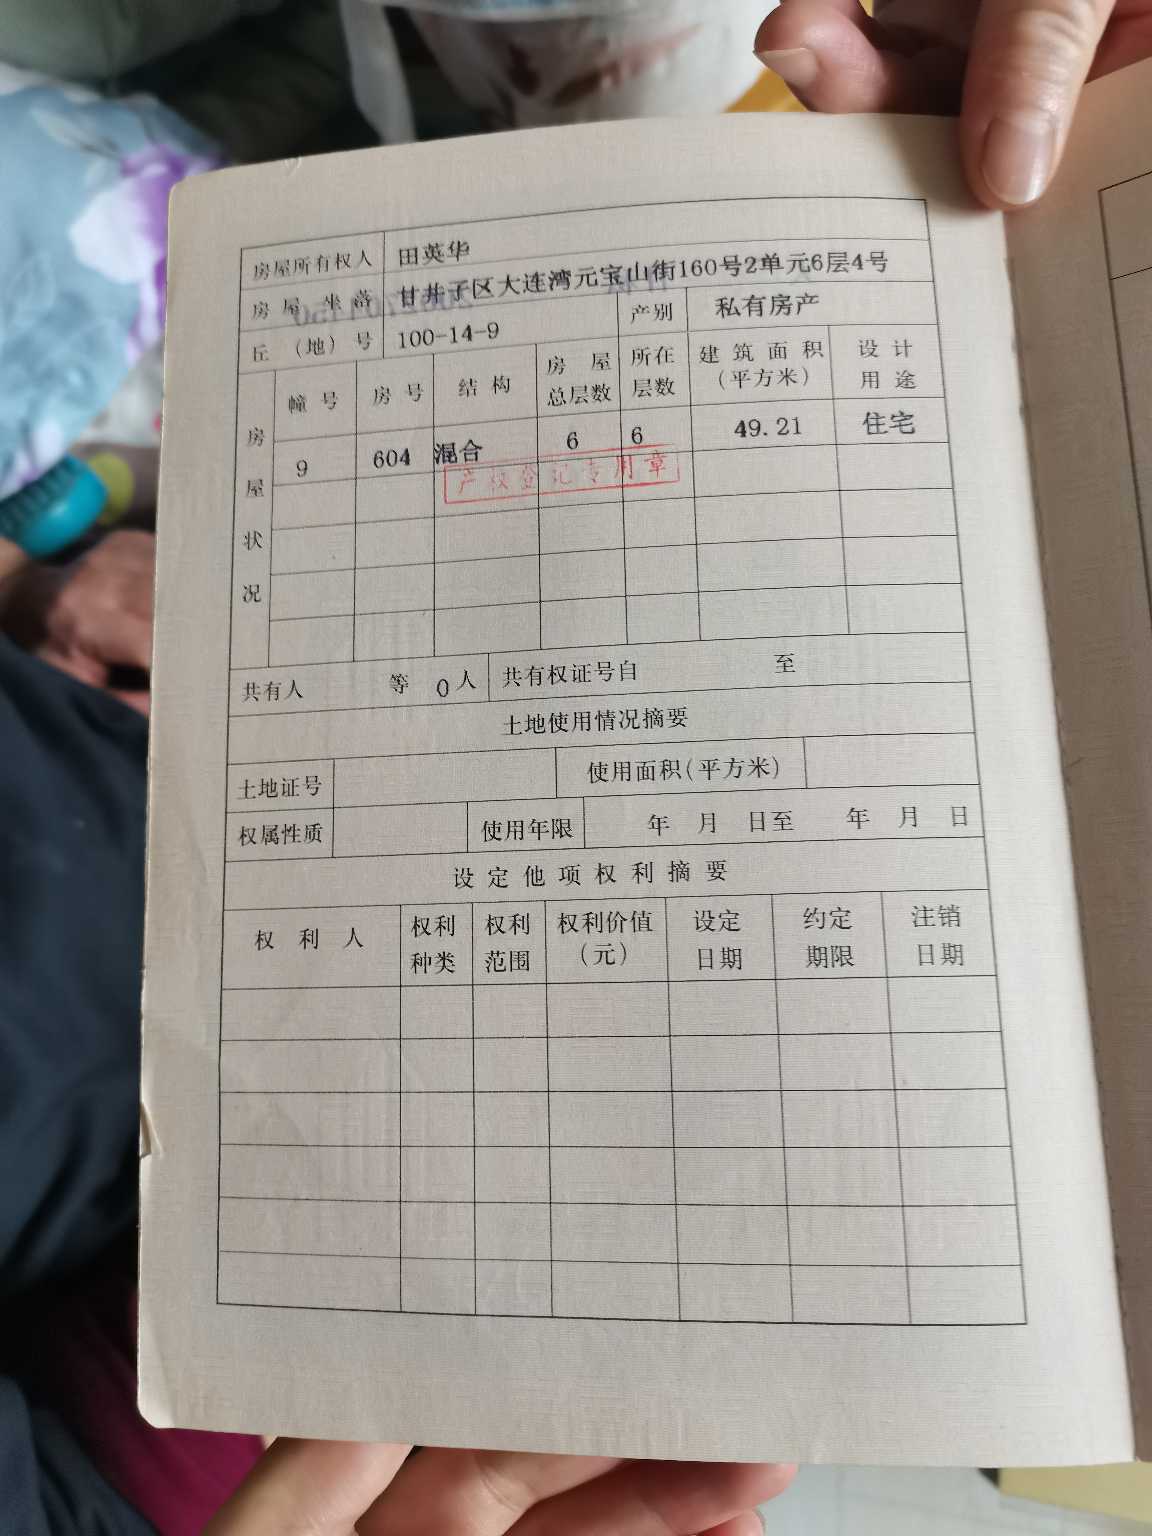 房屋所有权人 田英华
房屋坐落 甘井子区大连湾元宝山街160号2单元6层4号
丘（地）号 100-14-9 产别 私有房产
房屋状况 幢号 房号 结构 房屋总层数 所在层数 建筑面积（平方米） 设计用途
9 604 混合 6 6 49.21 住宅
产权登记专用章
共有人 等 0人 共有权证号自 至
土地使用情况摘要
土地证号 使用面积(平方米)
权属性质 使用年限 年 月 日至 年 月 日
设定他项权利摘要
权利人 权利种类 权利范围 权利价值（元） 设定日期 约定期限 注销日期